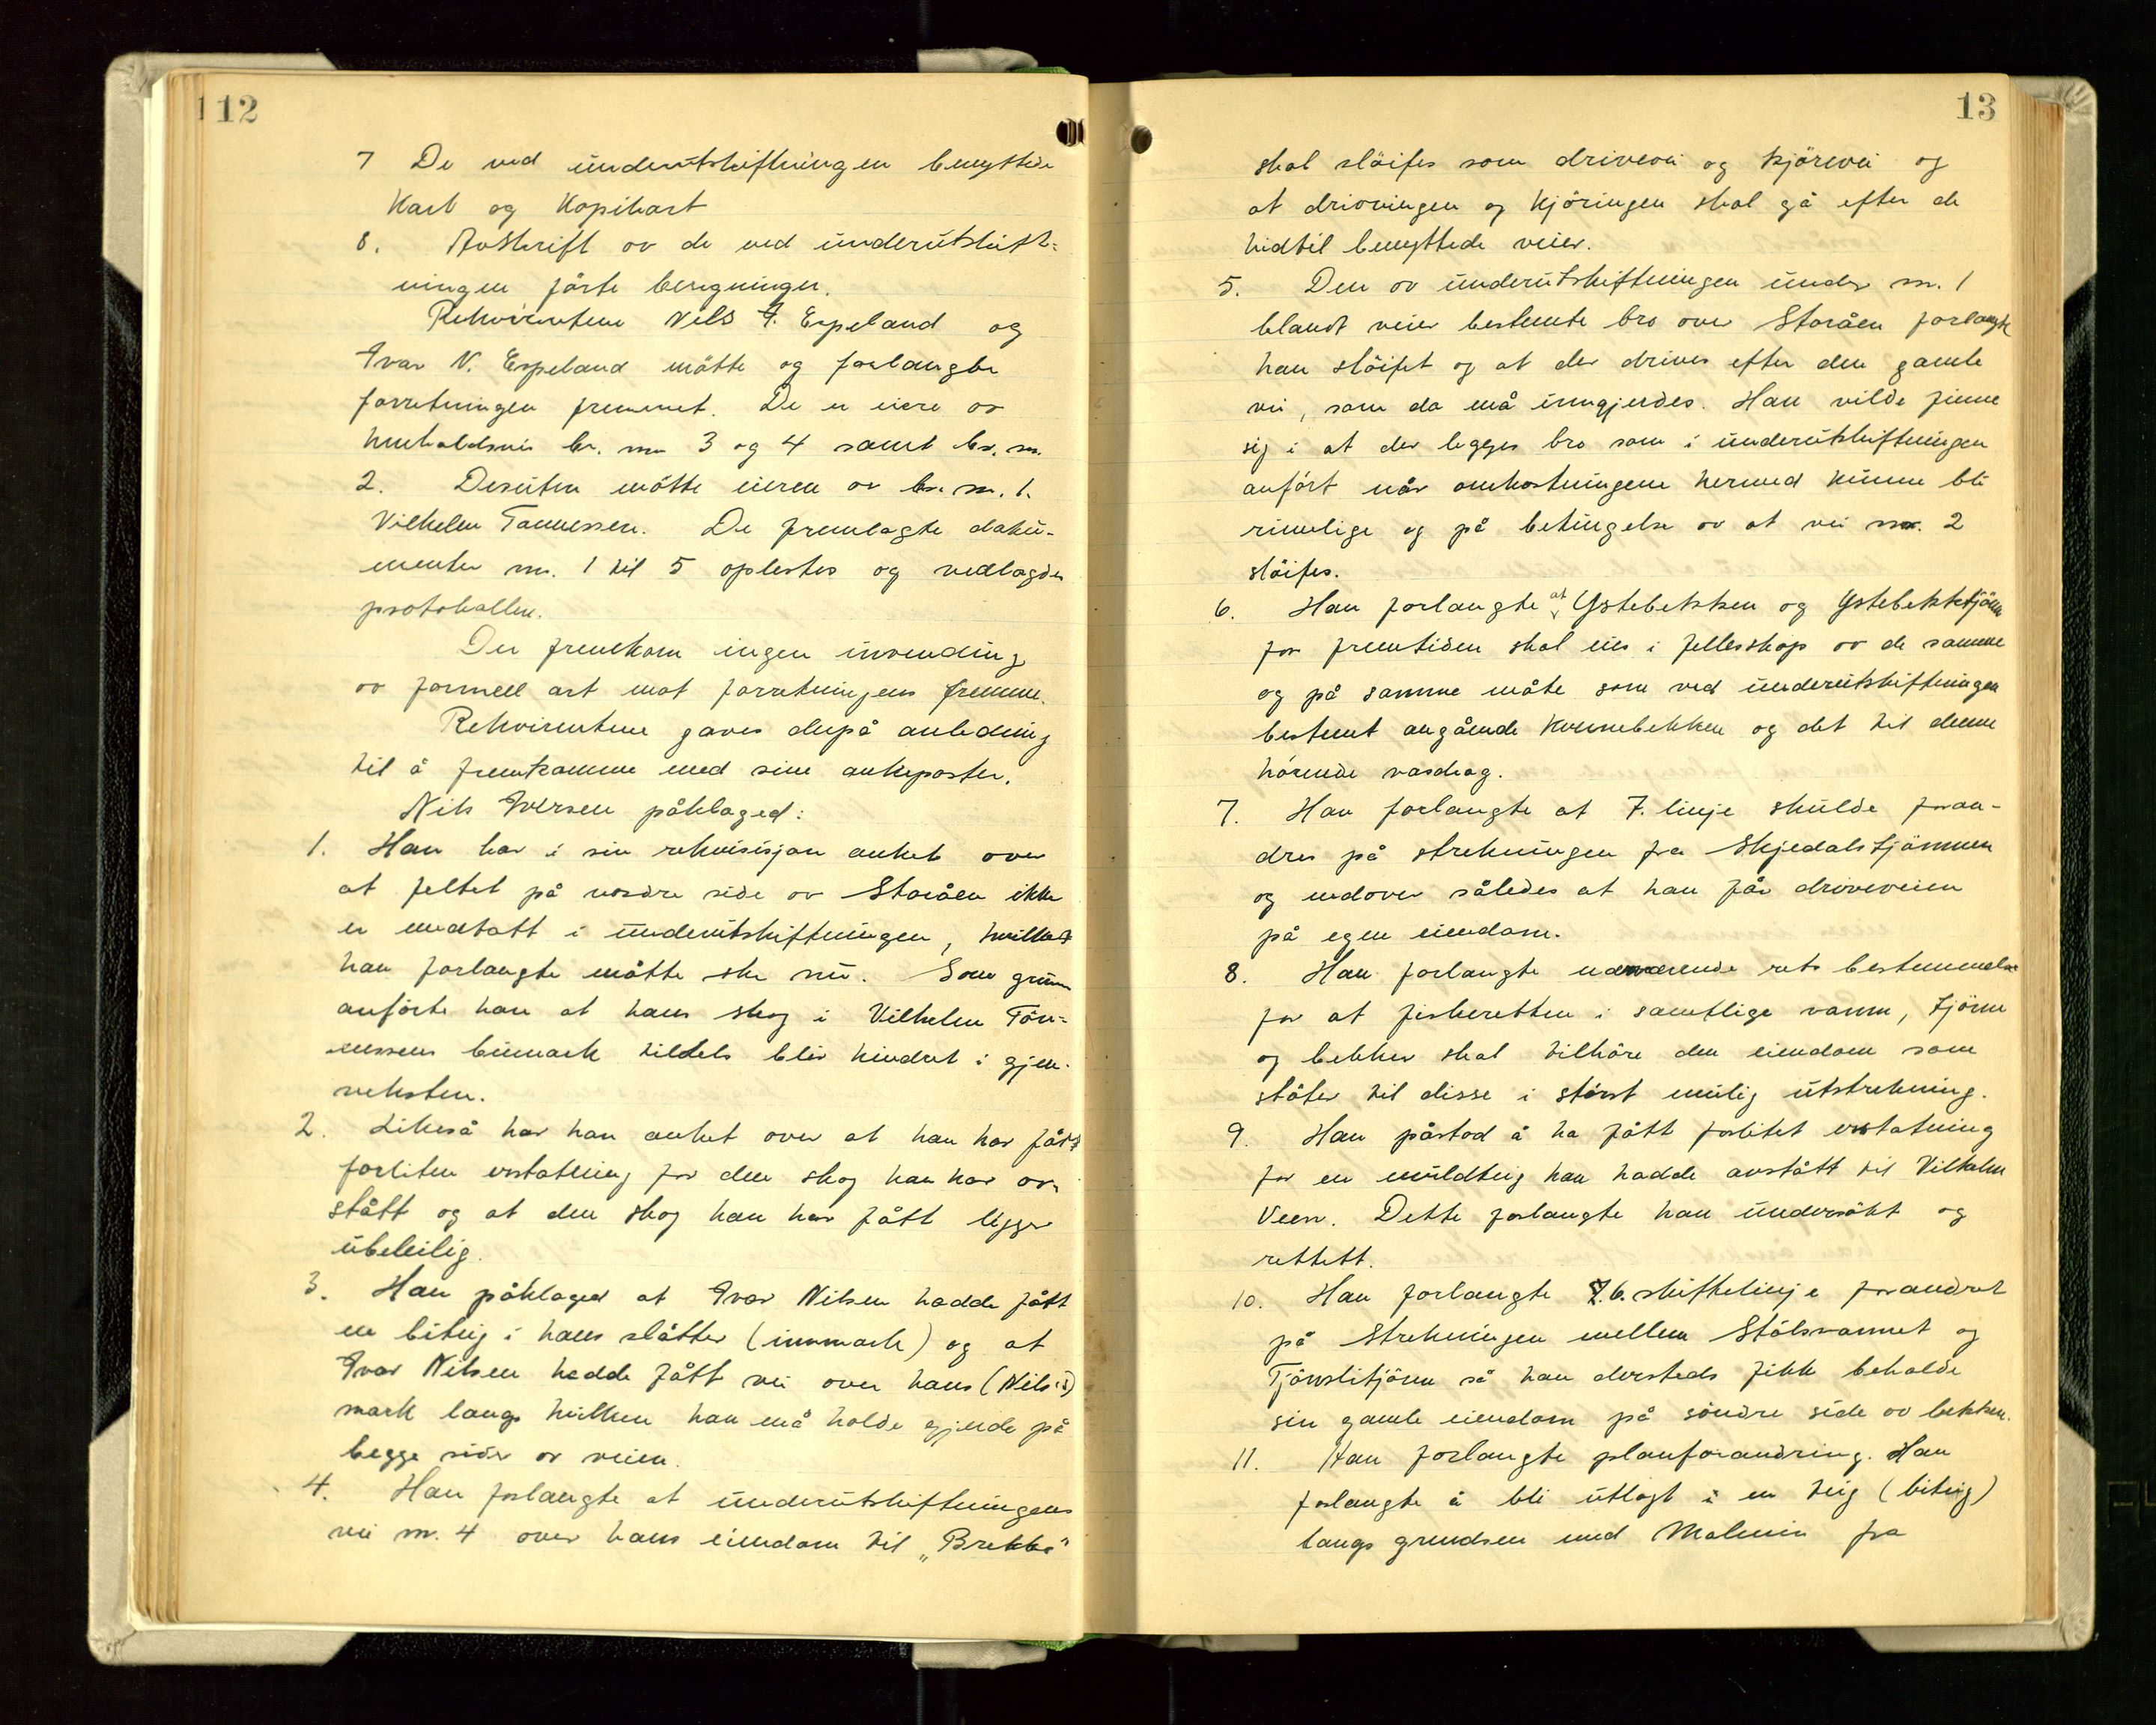 112
7 De ved underutskiftningen benyttede
Kart og Kopikart
8. Avskrift av de ved underutskift-
ningen førte beregninger.
Rekvirentene Nils I. Espeland og
Ivar N. Espeland møtte og forlangte
forretningen fremmet. De er eiere av
henholdsvis br. nr. 3 og 4 samt br. nr.
2. Desuten møtte eieren av br. nr. 1.
Vilhelm Tønnessen. De fremlagte doku-
menter nr. 1 til 5 oplestes og vedlagdes
protokollen.
Der fremkom ingen invending
av formell art mot forretningens fremme.
Rekvirentene gaves derpå anledning
til å fremkomme med sine ankeposter.
Nils Iversen påklaged:
1. Han har i sin rekvisisjon anket over
at feltet på nordre side av Storåen ikke
er medtatt i underutskiftningen, hvilket
han forlangte måtte ske nu. Som grunn
anførte han at hans skog i Vilhelm Tøn-
nessens bumark tildels blir hindret i gjen-
veksten.
2. Likeså har han anket over at han har fått
forliten erstatning for den skog han har av-
stått og at den skog han har fått ligger
ubeleilig.
3. Han påklaged at Ivar Nilsen hadde fått
en biteig i hans slåtter (innmark) og at
Ivar Nilsen hadde fått vei over hans (Nils's)
mark langs hvilken han må holde gjerde på
begge sider av veien.
4. Han forlangte at underutskiftningens
vei nr. 4 over hans eiendom til „Brekka"
13
skal sløifes som drivevei og kjørevei og
at drivningen og kjøringen skal gå efter de
hidtil benyttede veier.
5. Den av underutskiftningen under nr. 1
blandt veier bestemte bro over Storåen forlangte
han sløifet og at der drives efter den gamle
vei, som da må inngjerdes. Han vilde finne
sig i at der legges bro som i underutskiftningen
anført når omkostningene hermed kunne bli
rimelige og på betingelse av at vei nr. 2
sløifes.
6. Han forlangte at Ystebekken og Ystebekktjønn
for fremtiden skal eies i fellesskap av de samme
og på samme måte som ved underutskiftningen
bestemt angående Kvernebekken og det til denne
hørende vasdrag.
7. Han forlangte at 7. linje skulde foran-
dres på strekningen fra Skjedalstjønnen
og nedover således at han får driveveien
på egen eiendom.
8. Han forlangte nærværende rets bestemmelse
for at fiskeretten i samtlige vann, tjønn
og bekker skal tilhøre den eiendom som
støter til disse i størst mulig utstrekning.
9. Han påstod å ha fått forlitet erstatning
for en muldteig han hadde avstått til Vilhelm
Veen. Dette forlangte han undersøkt og
rettett.
10. Han forlangte 6. skiftelinje forandret
på strekningen mellem Stølsvannet og
Tjønnlitjønn så han dersteds fikk beholde
sin gamle eiendom på søndre side av bekken.
11. Han forlangte planforandring. Han
forlangte å bli utlagt i en teig (biteig)
langs grendsen med Malmin fra